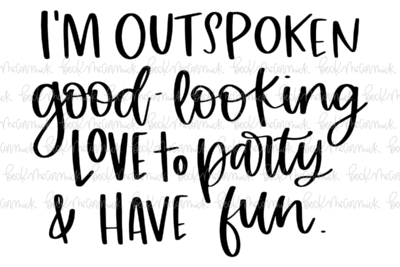 I'M OUTSPOKEN
good-looking
LOVE to party
& HAVE fun.